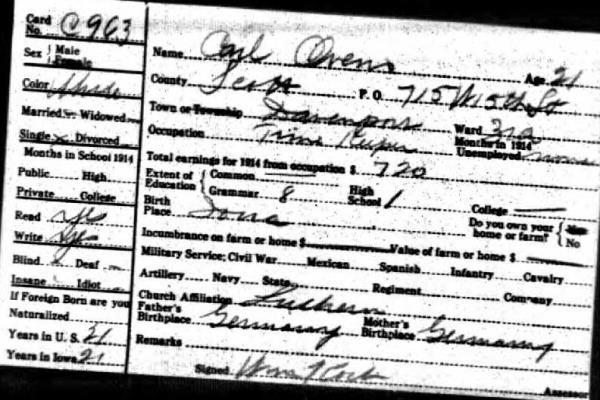 Card No. C963
Sex Male Female
Color White
Married Widowed
Single x Divorced
Months in School 1914
Public High
Private College
Read yes
Write yes
Blind Deaf
Insane Idiot
If Foreign Born are you
Naturalized
Years in U. S. 21
Years in Iowa 21
Name Carl Ovens Age 21
County Scott P. O. 715 W 5th St
Town or Township Davenport Ward 3rd
Occupation Time Keeper Months in 1914 Unemployed none
Total earnings for 1914 from occupation $ 720
Extent of Education Common
Grammar 8 High School 1 College
Birth Place Iowa Do you own your home or farm? Yes No
Incumbrance on farm or home $ Value of farm or home $
Military Service; Civil War Mexican Spanish Infantry Cavalry
Artillery Navy State Regiment Company
Church Affiliation Lutheran
Father's Birthplace Germany Mother's Birthplace Germany
Remarks
Signed Assessor